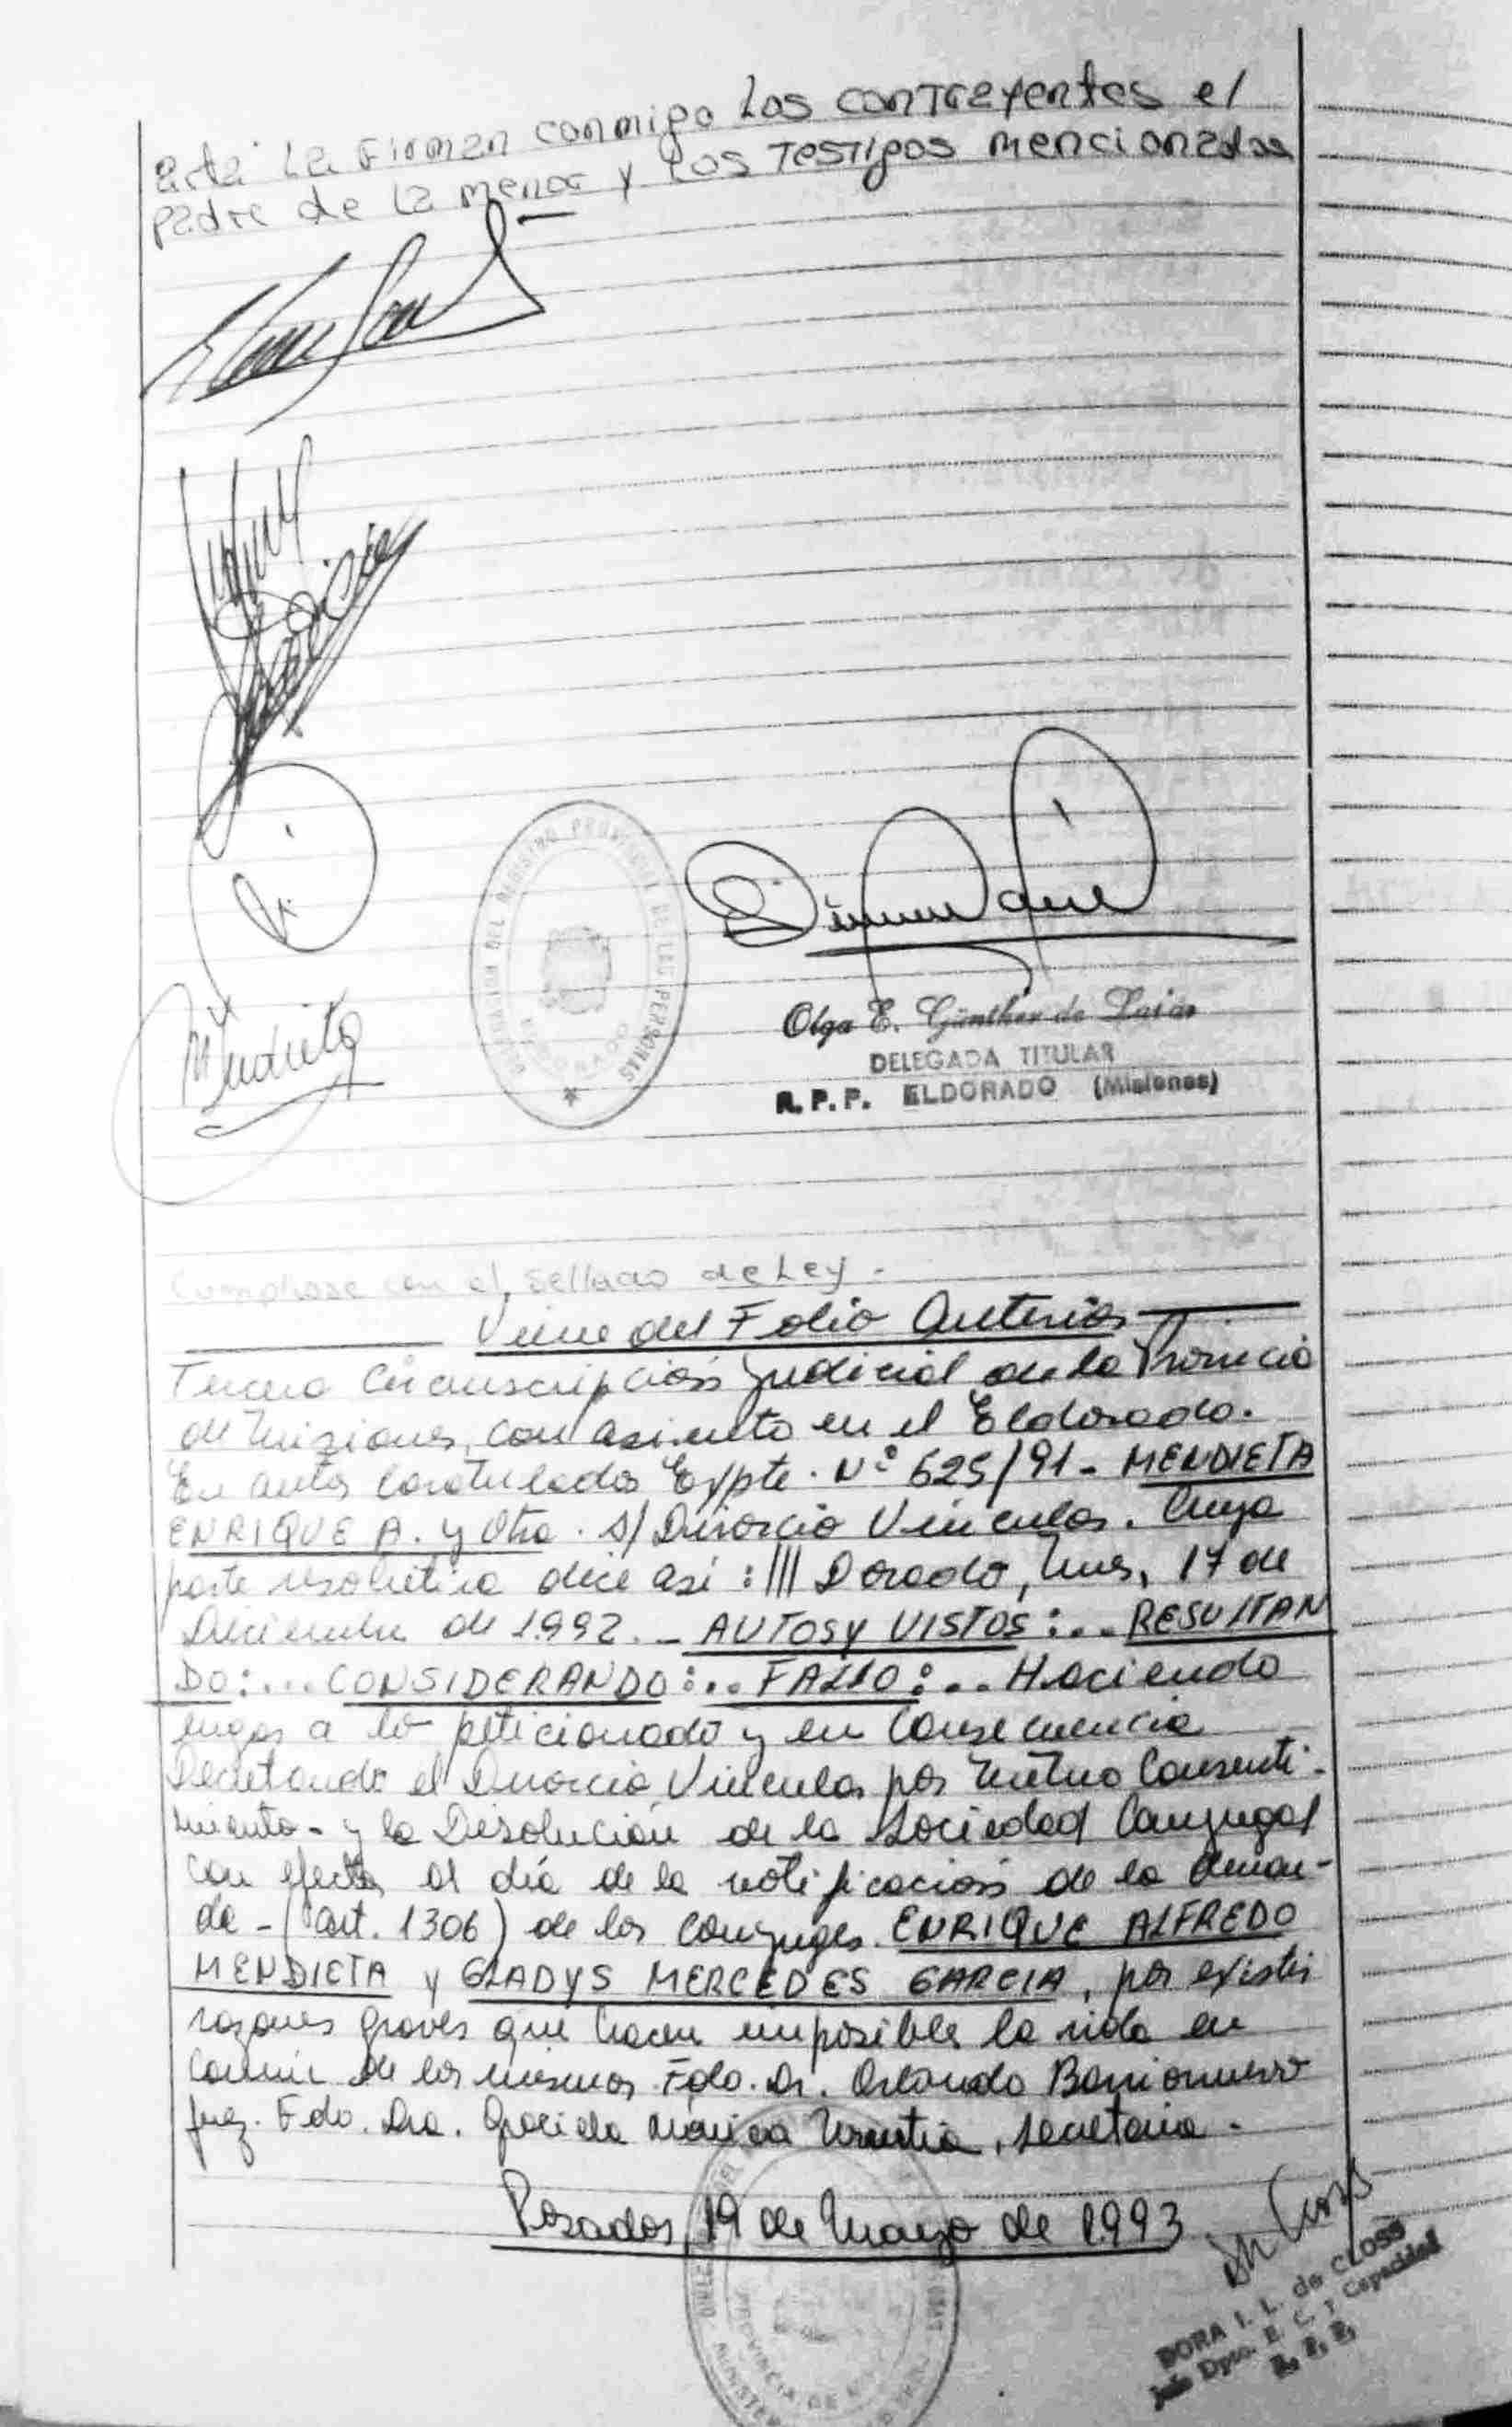 acta La Firman conmigo Los contrayentes el
padre de la menor y Los Testigos mencionados
Mendieta
DELEGACION DEL REGISTRO PROVINCIAL DE LAS PERSONAS
ELDORADO
Olga E. Günther de Laias
DELEGADA TITULAR
R.P.P. ELDORADO (Misiones)
Cumplase con el Sellado de Ley.-
Viene del Folio Anterior
Tercera Circunscripción Judicial de la Provincia
de Misiones, con asiento en el Eldorado.
En autos caratulados Expte. Nº 625/91 - MENDIETA
ENRIQUE A. y Otra. s/ Divorcio Vincular. Cuya
parte resolutiva dice así: /// Dorado, Mnes, 17 de
Diciembre de 1.992.- AUTOS Y VISTOS:.. RESULTAN
DO:... CONSIDERANDO:.. FALLO:... Haciendo
lugar a lo peticionado y en Consecuencia
Decretando el Divorcio Vincular por Mutuo Consenti-
miento- y la Disolución de la Sociedad Conyugal
con efecto al día de la notificación de la deman-
da - (art. 1306) de los conyuges ENRIQUE ALFREDO
MENDIETA y GLADYS MERCEDES GARCIA, por existir
razones graves que hacen imposible la vida en
común de los mismos. Fdo. Dr. Orlando Barrionuevo
Juez. Fdo. Dra. Graciela Mónica Urrutia, Secretaria.-
Posadas, 19 de Mayo de 1.993
DORA I. L. de CLOSS
Jefe Dpto. E. C. y Capacidad
R. P. P.
PROVINCIA DE